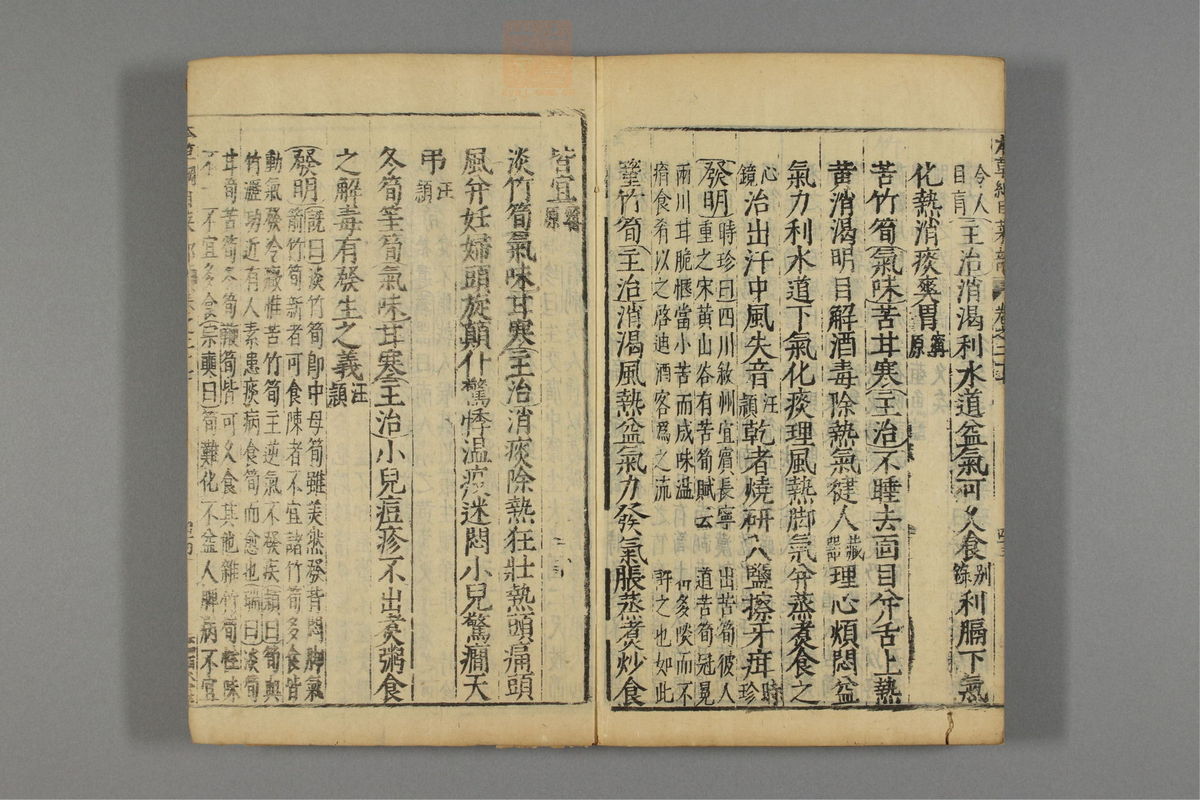 冷人
目盲 主治消渴利水道益氣可久食 别
錄 利膈下氣
化熱消痰爽胃 寗
原
苦竹筍 氣味苦甘寒 主治不睡去面目并舌上熱
黄消渴明目解酒毒除熱氣健人 藏
器 理心煩悶益
氣力利水道下氣化痰理風熱脚氣并蒸煑食之
心
鏡 治出汗中風失音 汪
頴 乾者燒研入鹽擦牙疳 時
珍
發明 時珍曰四川敘州宜賓長寧出苦筍彼人
重之宋黄山谷有苦筍賦云 道苦筍冠冕
兩川甘脆愜當小苦而成味温 多啖而不
㾮食肴以之啓迪酒客爲之流 許之也如此
䈽竹筍 主治消渴風熱益氣力發氣脹蒸煑炒食
皆宜 寗
原
淡竹筍氣味甘寒 主治消痰除熱狂壯熱頭痛頭
風并妊婦頭旋顛仆驚悸温疫迷悶小兒驚癇天
弔 汪
頴
冬筍筀筍氣味甘寒 主治小兒痘疹不出煑粥食
之解毒有發生之義 汪
頴
發明 詵曰淡竹筍即中母筍雖美然發背悶脚氣
箭竹筍新者可食陳者不宜諸竹筍多食皆
動氣發冷癥惟苦竹筍主逆氣不發疾頴曰筍與
竹瀝功近有人素患痰病食筍而愈也瑞曰淡筍
甘筍苦筍冬筍鞭筍皆可久食其他雜竹筍性味
不一不宜多食宗奭曰筍難化不益人脾病不宜